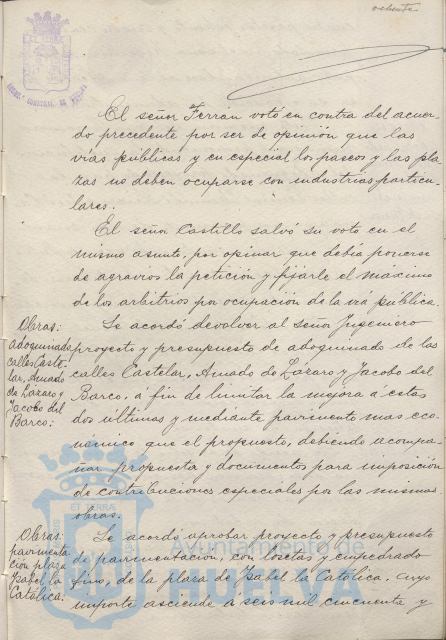 ochenta
El señor Ferrán votó en contra del acuer-
do precedente por ser de opinión que las
vías públicas y en especial los paseos y las pla-
zas no deben ocuparse con industrias particu-
lares.
El señor Castillo salvó su voto en el
mismo asunto, por opinar que debía ponerse
de agravios la petición y fijarle el máximo
de los arbitrios por ocupación de la vía pública.
Obras:
adoquinado
calles Caste-
lar, Amado
de Lázaro y
Jacobo del
Barco:
Se acordó devolver al señor Ingeniero
proyecto y presupuesto de adoquinado de las
calles Castelar, Amado de Lázaro y Jacobo del
Barco, a fin de limitar la mejora á estas
dos últimas y mediante pavimento mas eco-
nómico que el propuesto, debiendo acompa-
ñar propuesta y documentos para imposición
de contribuciones especiales por las mismas
obras.
Obras:
pavimenta-
ción plaza
Isabel la
Católica:
Se acordó aprobar proyecto y presupuesto
de pavimentación, con losetas y empedrado
fino, de la plaza de Isabel la Católica, cuyo
importe asciende a seis mil cincuenta y
Ayuntamiento de
HUELVA